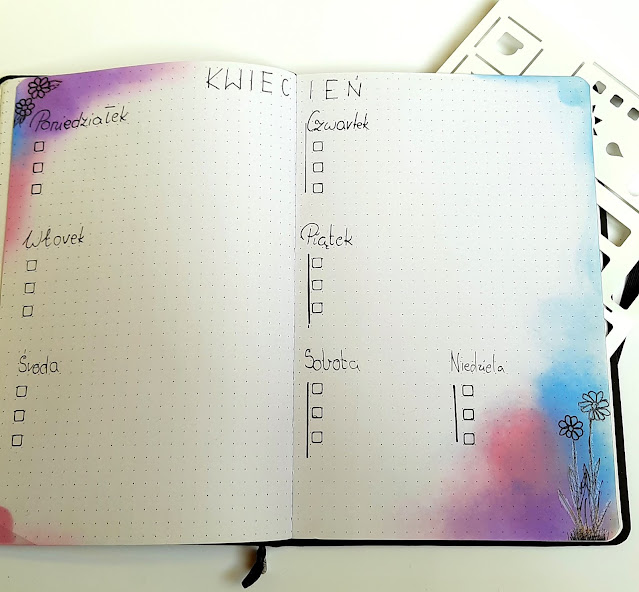 KWIECIEŃ
Poniedziałek
Wtorek
Środa
Czwartek
Piątek
Sobota
Niedziela